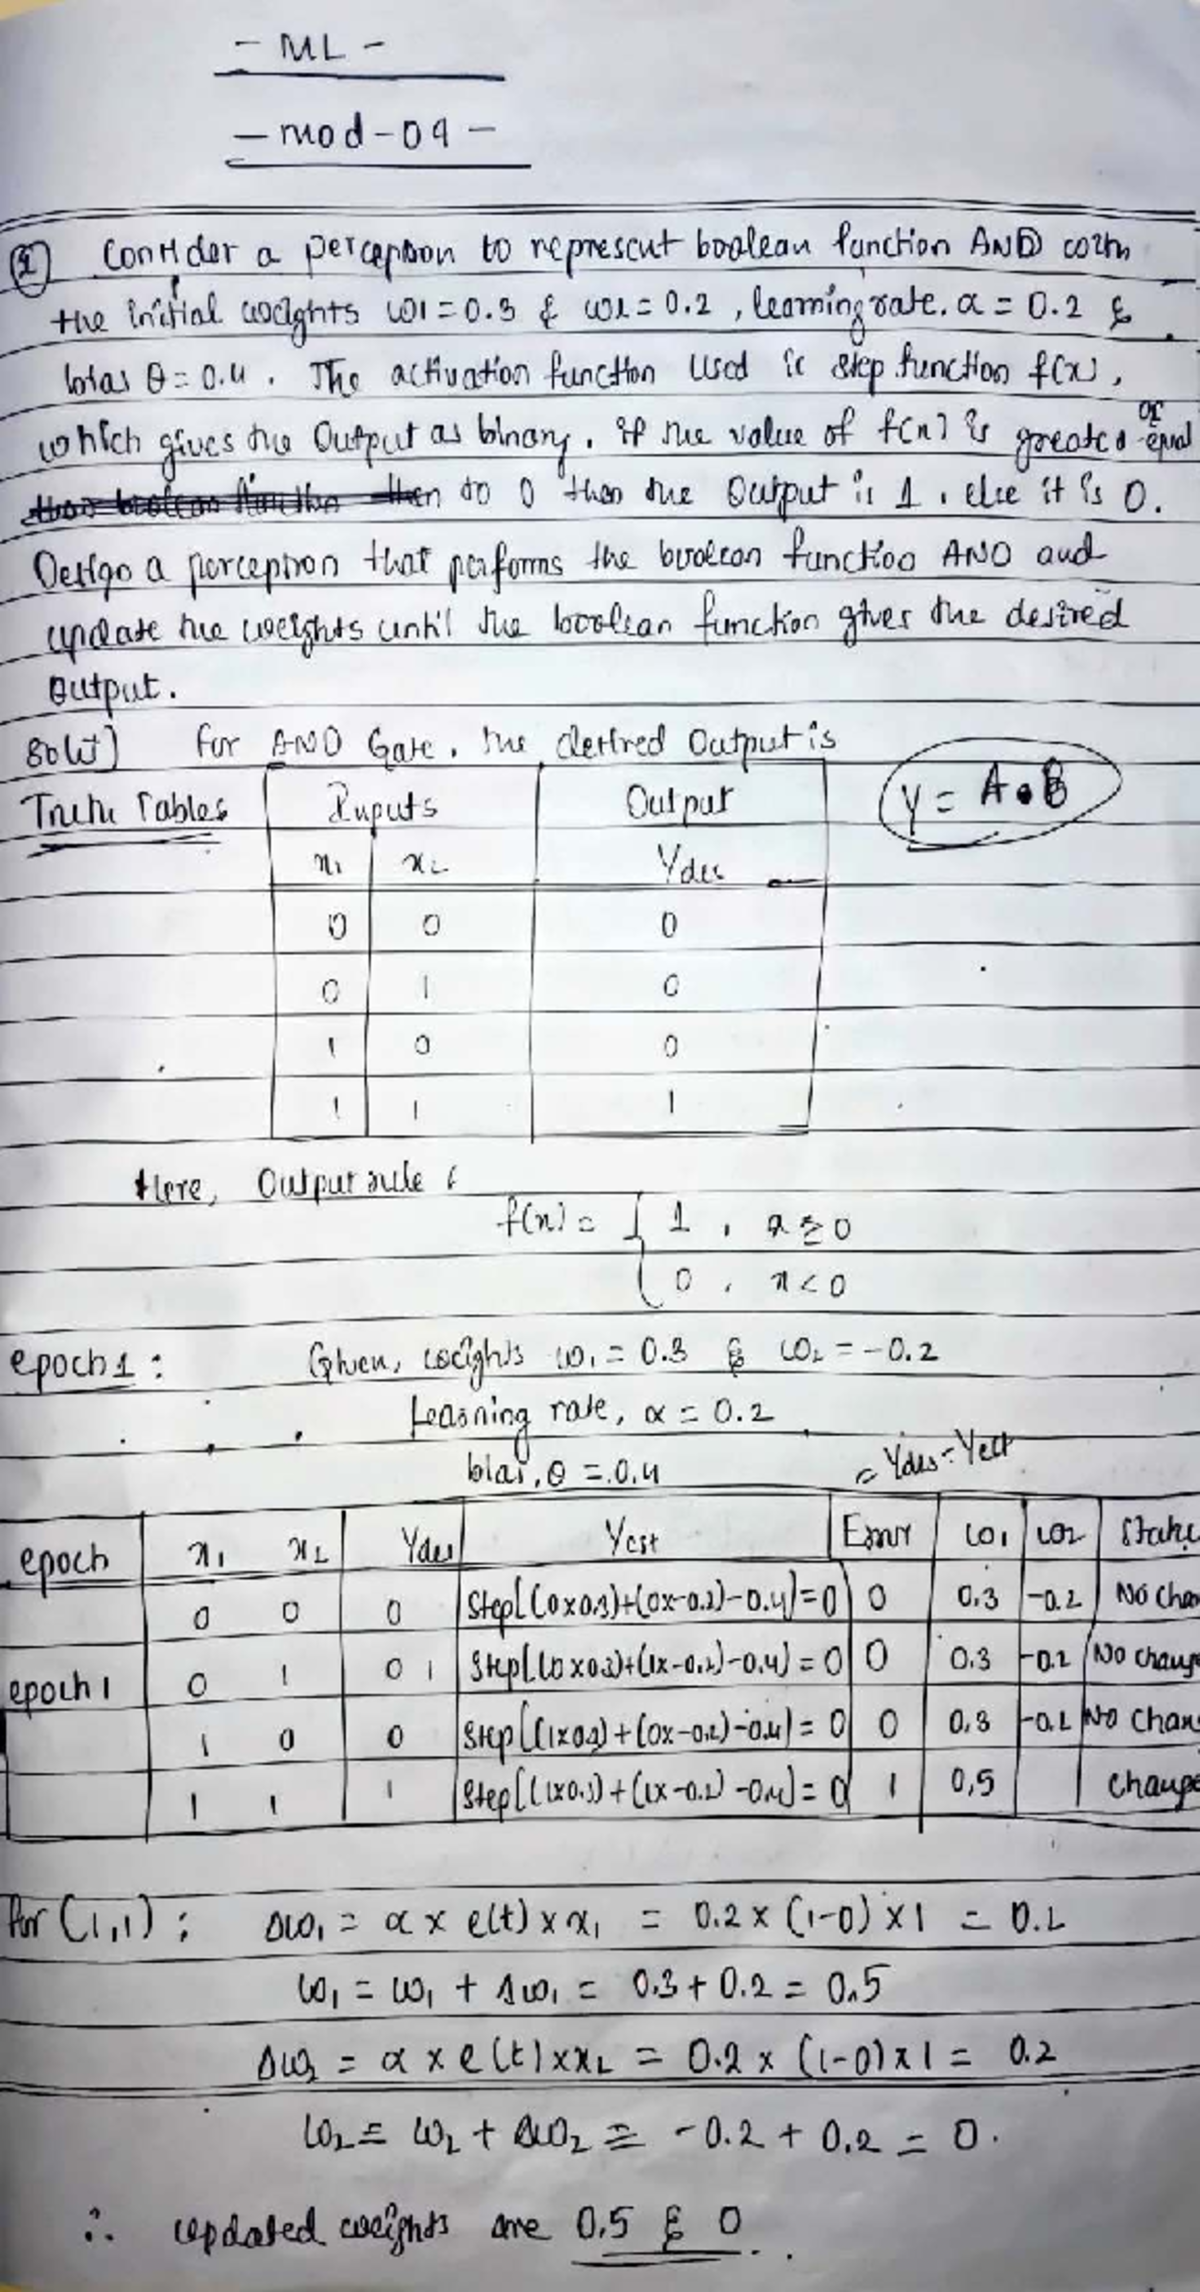 - ML -
- mod-04 -
① Consider a perceptron to represent boolean function AND with
the initial weights w1 = 0.3 & w2 = 0.2, learning rate. α = 0.2 &
bias θ = 0.4. The activation function used is step function f(x),
which gives the Output as binary. If the value of f(x) is greater or equal
to 0 then the Output is 1. else it is 0.
Design a perceptron that performs the boolean function AND and
update the weights until the boolean function gives the desired
Output.
Solt) for AND Gate, the desired Output is
Truth Tables Inputs Output Y = A.B
x1 x2 Ydes
0 0 0
0 1 0
1 0 0
1 1 1
Here, Output rule
f(x) = { 1, x ≥ 0
0, x < 0
epoch1: Given, weights w1 = 0.3 & w2 = -0.2
Learning rate, α = 0.2
bias, θ = 0.4 = Ydes - Yest
epoch x1 x2 Ydes Yest Error w1 w2 State
0 0 0 Step[(0x0.3)+(0x-0.2)-0.4]=0 0 0.3 -0.2 No
epoch 1 0 1 0 Step[(0x0.3)+(1x-0.2)-0.4]=0 0 0.3 -0.2 No change
1 0 0 Step[(1x0.3)+(0x-0.2)-0.4]=0 0 0.3 -0.2 No
1 1 1 Step[(1x0.3)+(1x-0.2)-0.4]=0 1 0.5 change
for (1,1): Δw1 = α x e(t) x x1 = 0.2 x (1-0) x 1 = 0.2
w1 = w1 + Δw1 = 0.3 + 0.2 = 0.5
Δw2 = α x e(t) x x2 = 0.2 x (1-0) x 1 = 0.2
w2 = w2 + Δw2 = -0.2 + 0.2 = 0.
∴ updated weights are 0.5 & 0.